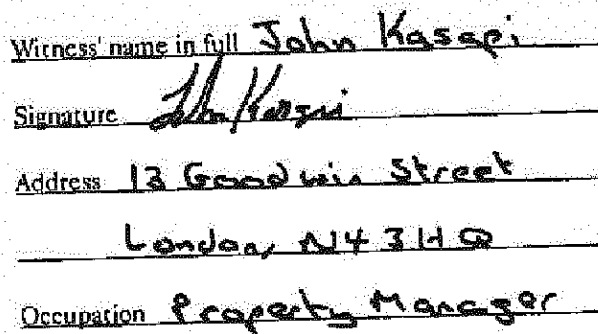 Witness' name in full John Kasapi
Signature John Kasapi
Address 13 Goodwin Street
London, N4 3HQ
Occupation Property Manager